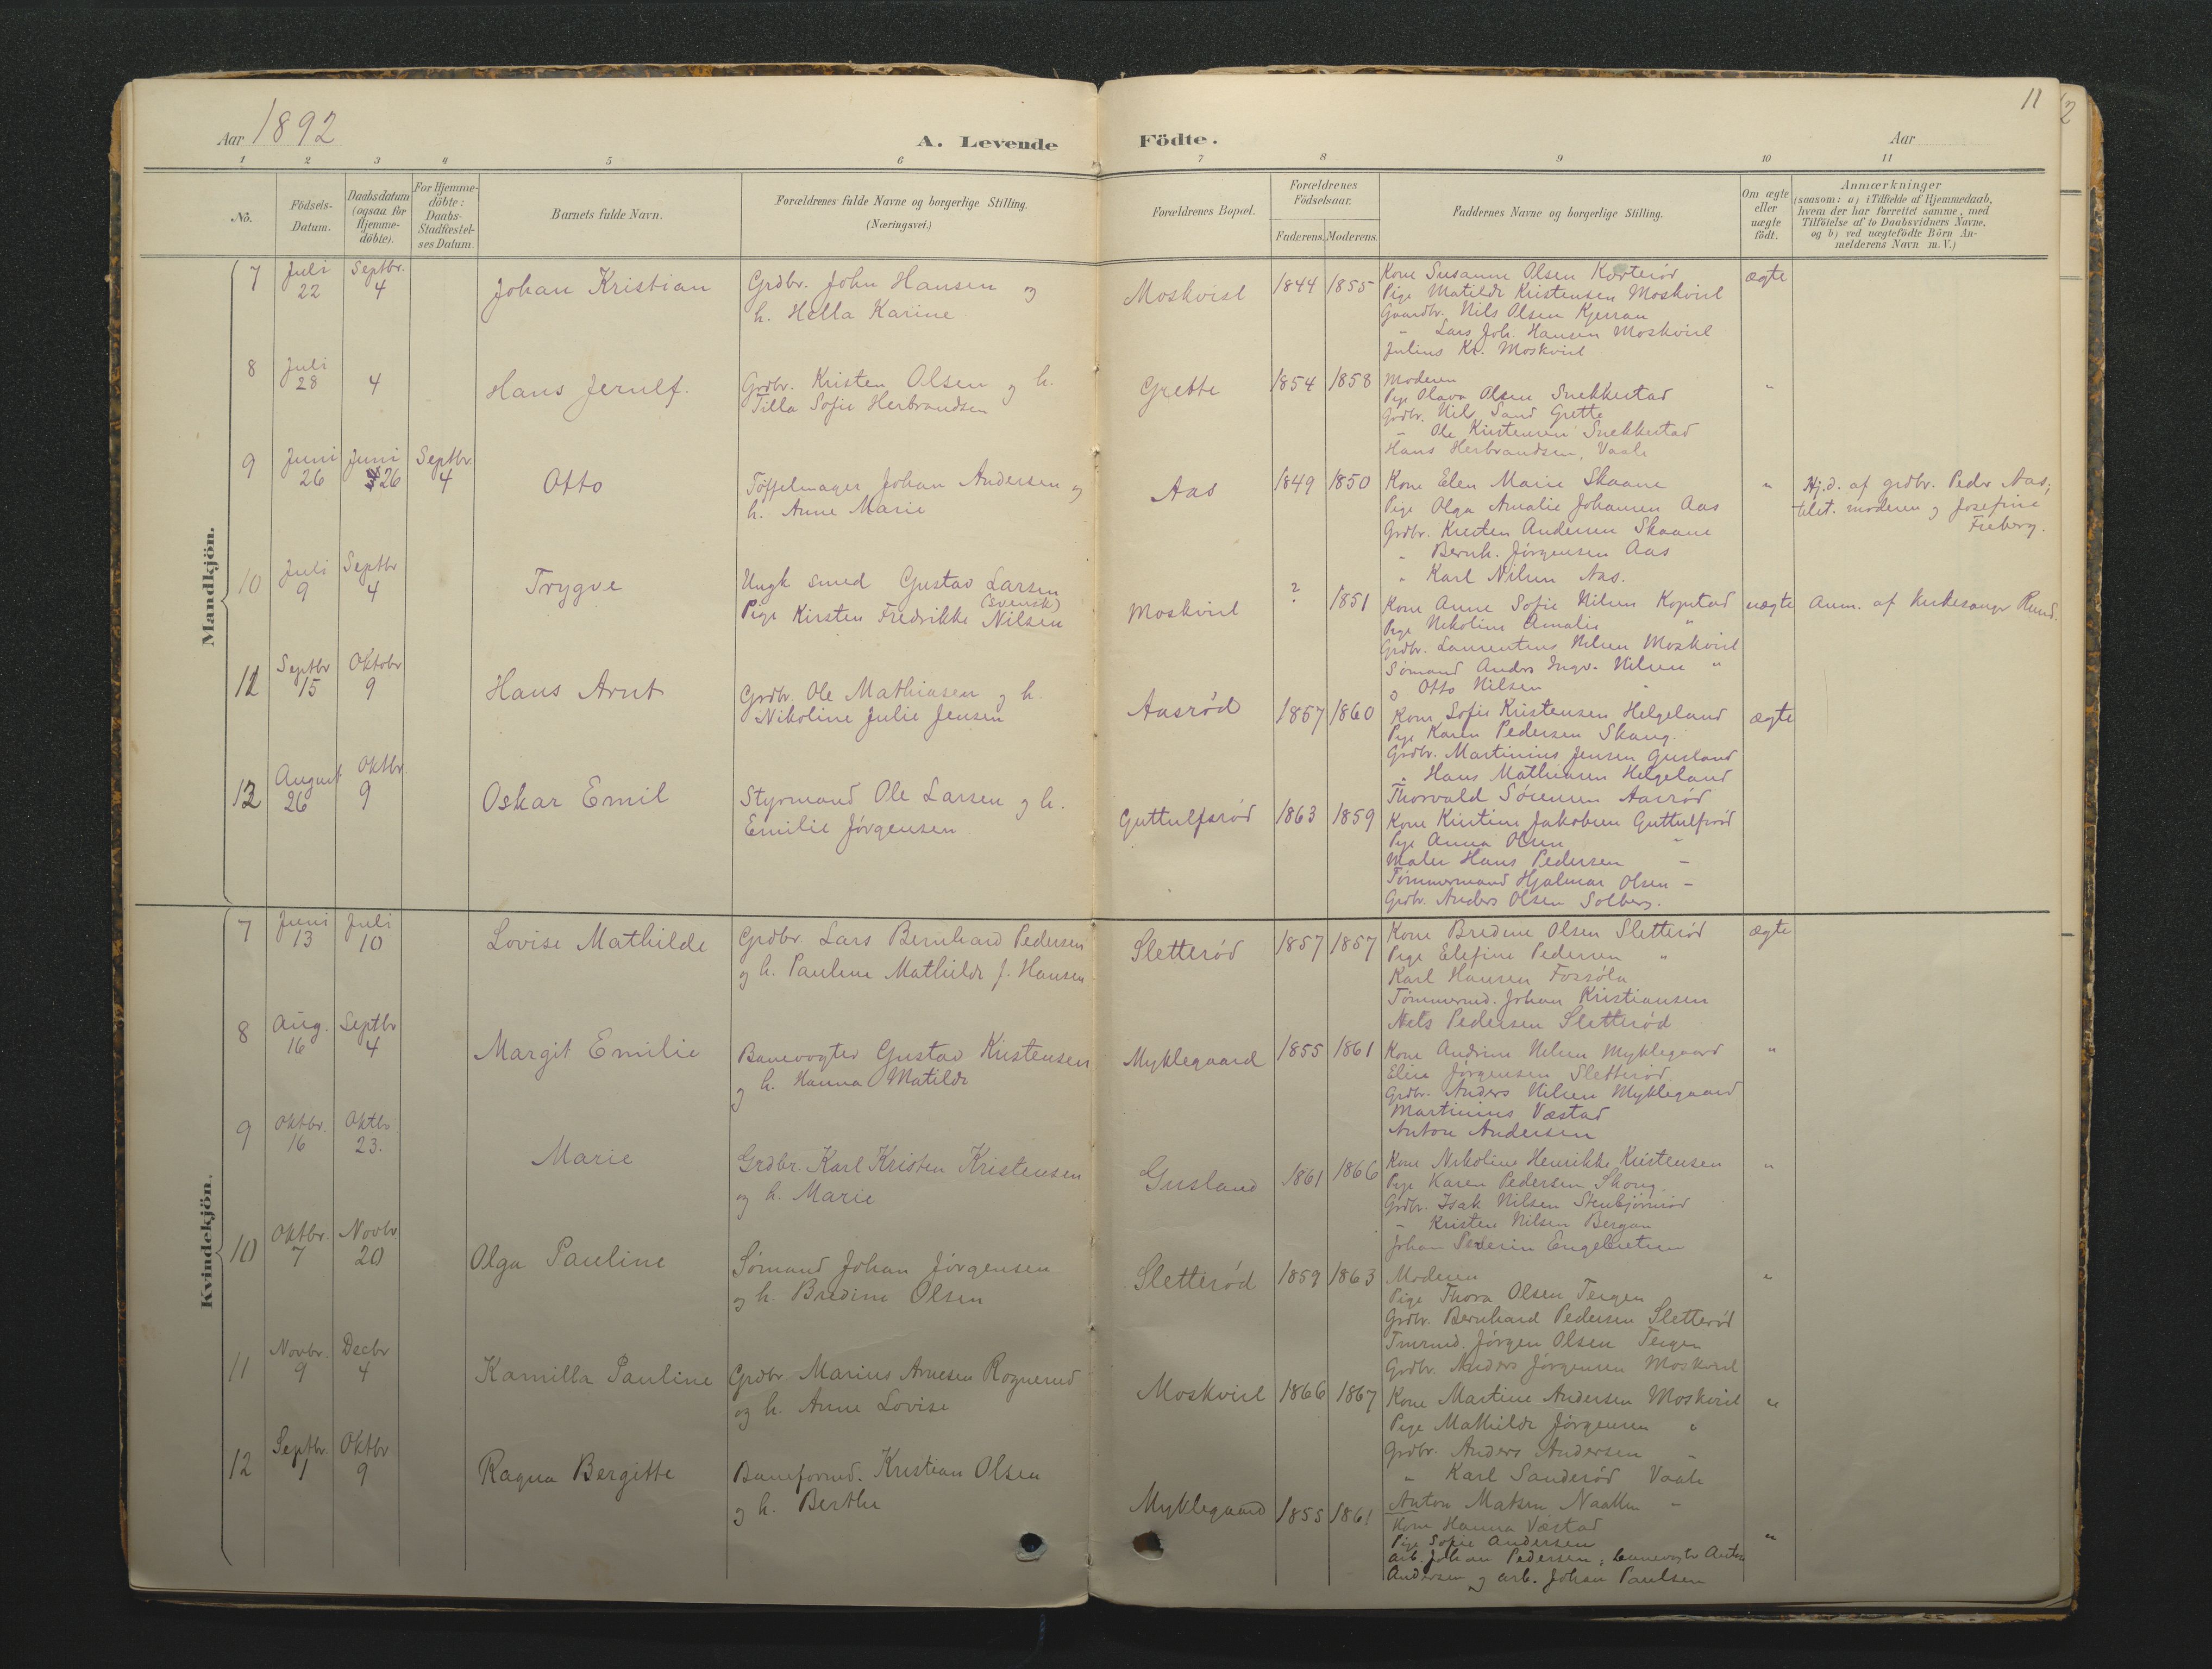 11
Aar 1892
A. Levende Födte.
Aar
1 2 3 4 5 6 7 8 9 10 11
No.
Födsels-Datum.
Daabsdatum (ogsaa for Hjemme-döbte).
For Hjemme-döbte: Daabs-Stadfæstel-ses Datum.
Barnets fulde Navn.
Forældrenes fulde Navne og borgerlige Stilling.
(Næringsvei.)
Forældrenes Bopæl.
Forældrenes Födselsaar.
Faderens. Moderens.
Faddernes Navne og borgerlige Stilling.
Om ægte eller uægte födt.
Anmærkninger
(saasom: a) i Tilfælde af Hjemmedaab,
hvem der har forrettet samme, med
Tilföielse af to Daabsvidners Navne,
og b) ved uægtefödte Börn An-
melderens Navn m. V.)
Mandkjön.
7 Juli 22 Septbr. 4 Johan Kristian
Grdbr. John Hansen og
h. Hella Karine
Moskvil 1844 1855
Kone Susanne Olsen Korterød
Pige Matilde Kristensen Moskvil
Gaardbr. Nils Olsen Kjerran
" Lars Joh. Hansen Moskvil
Julius Kr. Moskvil
ægte
8 Juli 28 4 Hans Jernlf.
Grdbr. Kristen Olsen og h.
Tilla Sofie Herbrandsen
Grette 1854 1858
Moderen
Pige Olava Olsen Snekkestad
Grdbr. Nils Sand Grette
- Ole Kristensen Snekkestad
Hans Herbrandsen, Vaale
"
9 Juni 26 Juni 26 Septbr. 4 Otto
Tøffelmager Johan Andersen og
h. Anne Marie
Aas 1849 1850
Kone Elen Marie Skaane
Pige Olga Amalie Johansen Aas
Grdbr. Kristen Andersen Skaane
" Bernh. Jørgensen Aas
" Karl Nilsen Aas.
"
Hj.d. af grdbr. Peder Aas;
tilst. moderen og Josefine
Freberg.
10 Juli 9 Septbr 4 Trygve
Ungk. smed Gustav Larsen
(svensk)
Pige Kirsten Fredrikke Nilsen
Moskvil ? 1851
Kone Anne Sofie Nilsen Kopstad
Pige Nikoline Amalie "
Grdbr. Laurentius Nilsen Moskvil
Sømand Anders Ingv. Nilsen "
og Otto Nilsen
uægte
Anm. af kirkesanger Rund.
11 Septbr 15 Oktobr 9 Hans Arnt
Grdbr. Ole Mathiasen og h.
Nikoline Julie Jensen
Aasrød 1857 1860
Kone Sofie Kristensen Helgeland
Pige Karen Pedersen Skaug.
Grdbr. Martinius Jensen Gusland
" Hans Mathiasen Helgeland
Thorvald Sørensen Aasrød
ægte
12 August 26 Oktbr 9 Oskar Emil
Styrmand Ole Larsen og h.
Emilie Jørgensen
Guttulfsrød 1863 1859
Kone Kristine Jakobsen Guttulfsrød
Pige Anna Olsen -
Maler Hans Pedersen -
Tømmermand Hjalmar Olsen -
Grdbr. Anders Olsen Solberg.
Kvindekjön.
7 Juni 13 Juli 10 Lovise Mathilde
Grdbr. Lars Bernhard Pedersen
og h. Pauline Mathilde f. Hansen
Sletterød 1857 1857
Kone Bredine Olsen Sletterød
Pige Elefine Pedersen "
Karl Hansen
Tømmermd. Johan Kristiansen
Nels Pedersen Sletterød
ægte
8 Aug. 16 Septbr 4 Margit Emilie
Banevogter Gustav Kristensen
og h. Hanna Matilde
Myklegaard 1855 1861
Kone Andrine Nilsen Myklegaard
Elise Jørgensen Sletterød
Grdbr. Anders Nilsen Myklegaard
Martinius Væstad
Anton Andersen
"
9 Oktbr. 16 Oktbr 23. Marie
Grdbr. Karl Kristen Kristensen
og h. Marie
Gusland 1861 1866
Kone Nikoline Henrikke Kristensen
Pige Karen Pedersen Skoug.
Grdbr. Isak Nilsen Stenbjørnrød
- Kristen Nilsen Bergan
Johan Pederin Engebretsen
"
10 Oktbr. 7 Novbr 20 Olga Pauline
Sømand Johan Jørgensen
og h. Bredine Olsen
Sletterød 1859 1863
Moderen
Pige Thora Olsen Teigen
Grdbr. Bernhard Pedersen Sletterød
Tmrmd. Jørgen Olsen Teigen
Grdbr. Anders Jørgensen Moskvil
"
11 Novbr. 9 Decbr 4 Kamilla Pauline
Grdbr. Marius Arnesen Rognerud
og h. Anne Lovise
Moskvil 1866 1867
Kone Martine Andersen Moskvil
Pige Mathilde Jørgensen "
Grdbr. Anders Andersen -
" Karl Sanderød Vaale
Anton Matsen -
"
12 Septbr. 1 Oktbr 9 Ragna Bergitte
Baneformd. Kristian Olsen
og h. Berthe
Myklegaard 1855 1861
Kone Hanna Væstad
Pige Sofie Andersen
arb. Johan Pedersen; banevogter Anton
Andersen og arb. Johan Paulsen
"